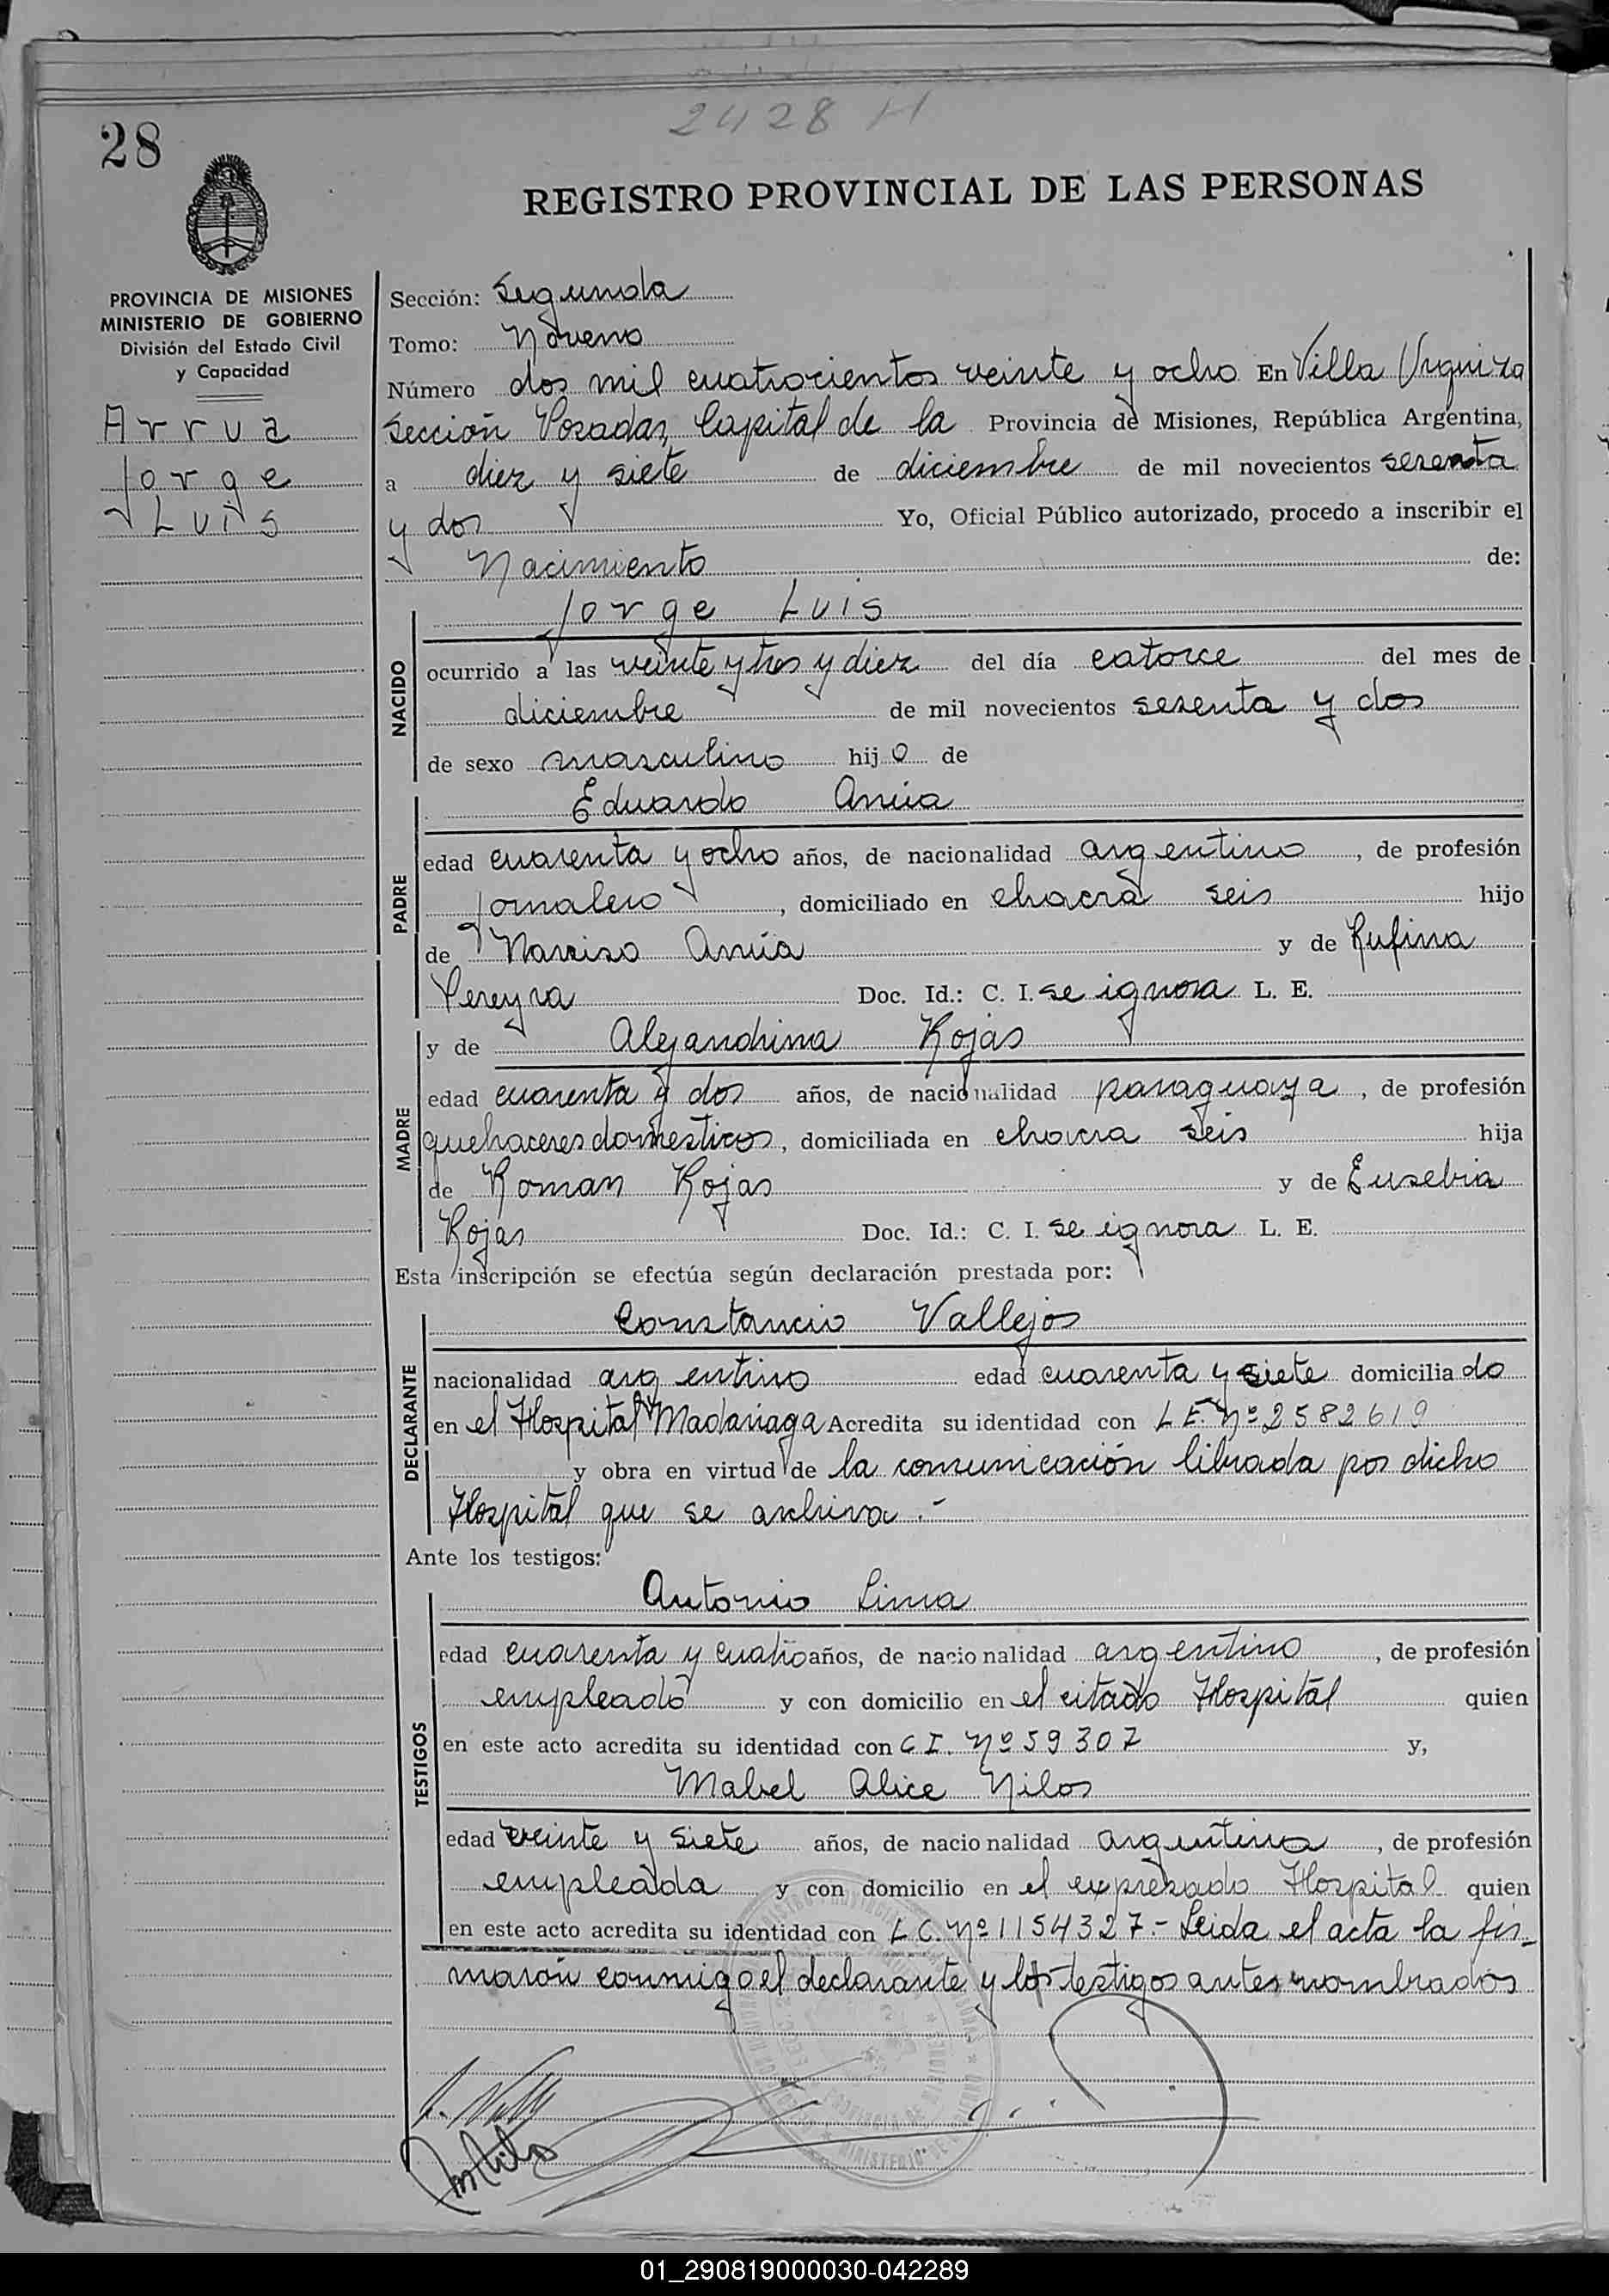 2428 H
28
REGISTRO PROVINCIAL DE LAS PERSONAS
PROVINCIA DE MISIONES
MINISTERIO DE GOBIERNO
División del Estado Civil
y Capacidad
Arrua
Jorge
Luis
Sección: Segunda
Tomo: Noveno
Número dos mil cuatrocientos veinte y ocho En Villa Urquiza
Sección Posadas, Capital de la Provincia de Misiones, República Argentina,
a diez y siete de diciembre de mil novecientos sesenta
y dos Yo, Oficial Público autorizado, procedo a inscribir el
Nacimiento de:
NACIDO
Jorge Luis
ocurrido a las veinte y tres y diez del día catorce del mes de
diciembre de mil novecientos sesenta y dos
de sexo masculino hijo de
PADRE
Eduardo Arrúa
edad cuarenta y ocho años, de nacionalidad argentino, de profesión
jornalero, domiciliado en chacra seis hijo
de Narciso Arrúa y de Rufina
Pereyra Doc. Id.: C. I. se ignora L. E.
MADRE
y de Alejandrina Rojas
edad cuarenta y dos años, de nacionalidad paraguaya, de profesión
quehaceres domesticos, domiciliada en chacra seis hija
de Roman Rojas y de Eusebia
Rojas Doc. Id.: C. I. se ignora L. E.
Esta inscripción se efectúa según declaración prestada por:
DECLARANTE
Constancio Vallejos
nacionalidad argentino edad cuarenta y siete domiciliado
en el Hospital Madariaga Acredita su identidad con L.E. Nº 2582619
y obra en virtud de la comunicación librada por dicho
Hospital que se archiva.-
Ante los testigos:
TESTIGOS
Antonio Lima
edad cuarenta y cuatro años, de nacionalidad argentino, de profesión
empleado y con domicilio en el citado Hospital quien
en este acto acredita su identidad con C I. Nº 59307 y,
Mabel Alice Nilos
edad veinte y siete años, de nacionalidad argentina, de profesión
empleada y con domicilio en el expresado Hospital quien
en este acto acredita su identidad con L C. Nº 1154327.- Leida el acta la fir-
maron conmigo el declarante y los testigos antes nombrados
01_290819000030-042289